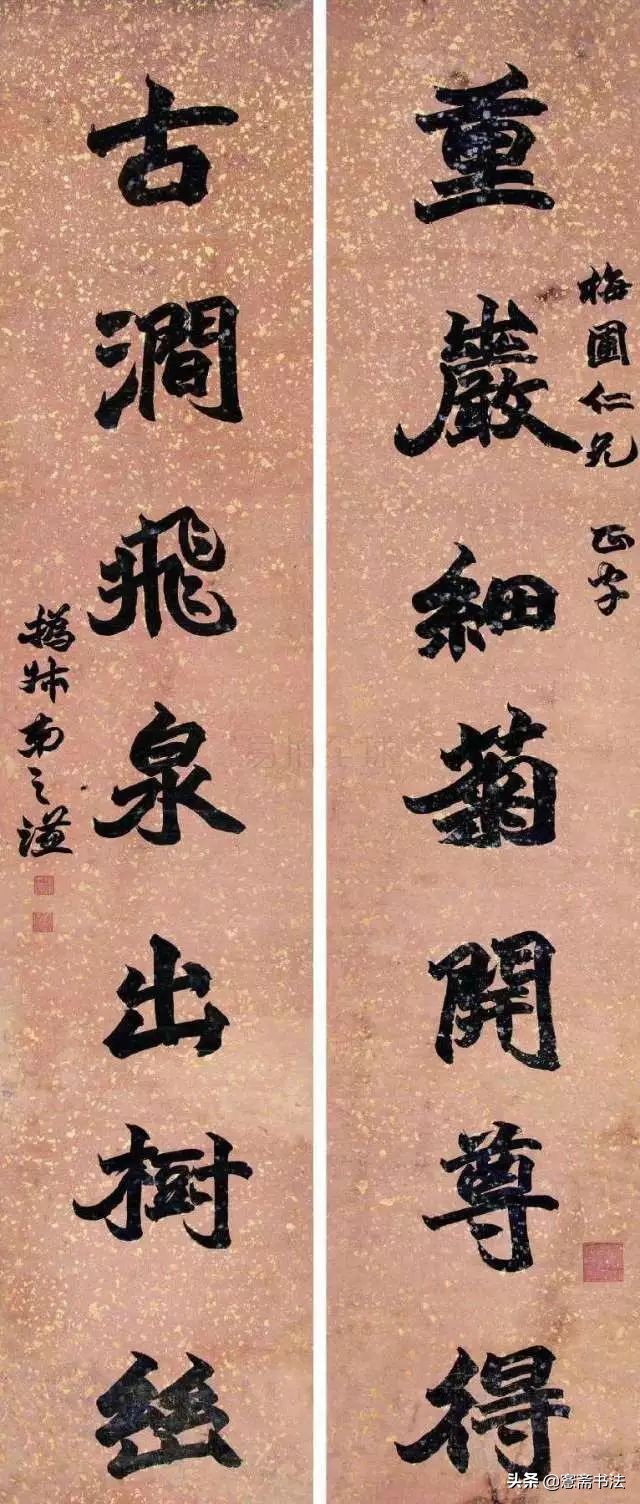 梅圃仁兄 正字
重巖細菊開尊得
古澗飛泉出樹
撝叔弟之謙
头条 @愙斋书法